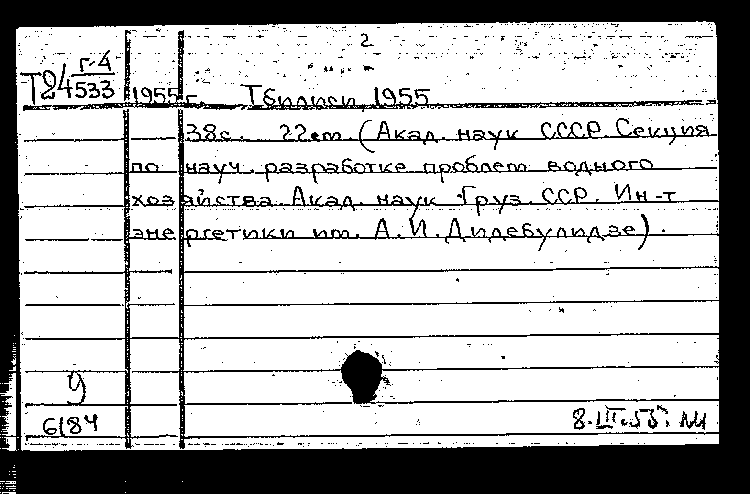 2
Г-4
Т24 533
1955 г. Тбилиси, 1955
38с. 22см. (Акад. наук СССР. Секция
по науч. разработке проблем водного
хозяйства. Акад. наук Груз. ССР. Ин-т
энергетики им. А.И. Дидебулидзе).
9
6184
8.III.55г.